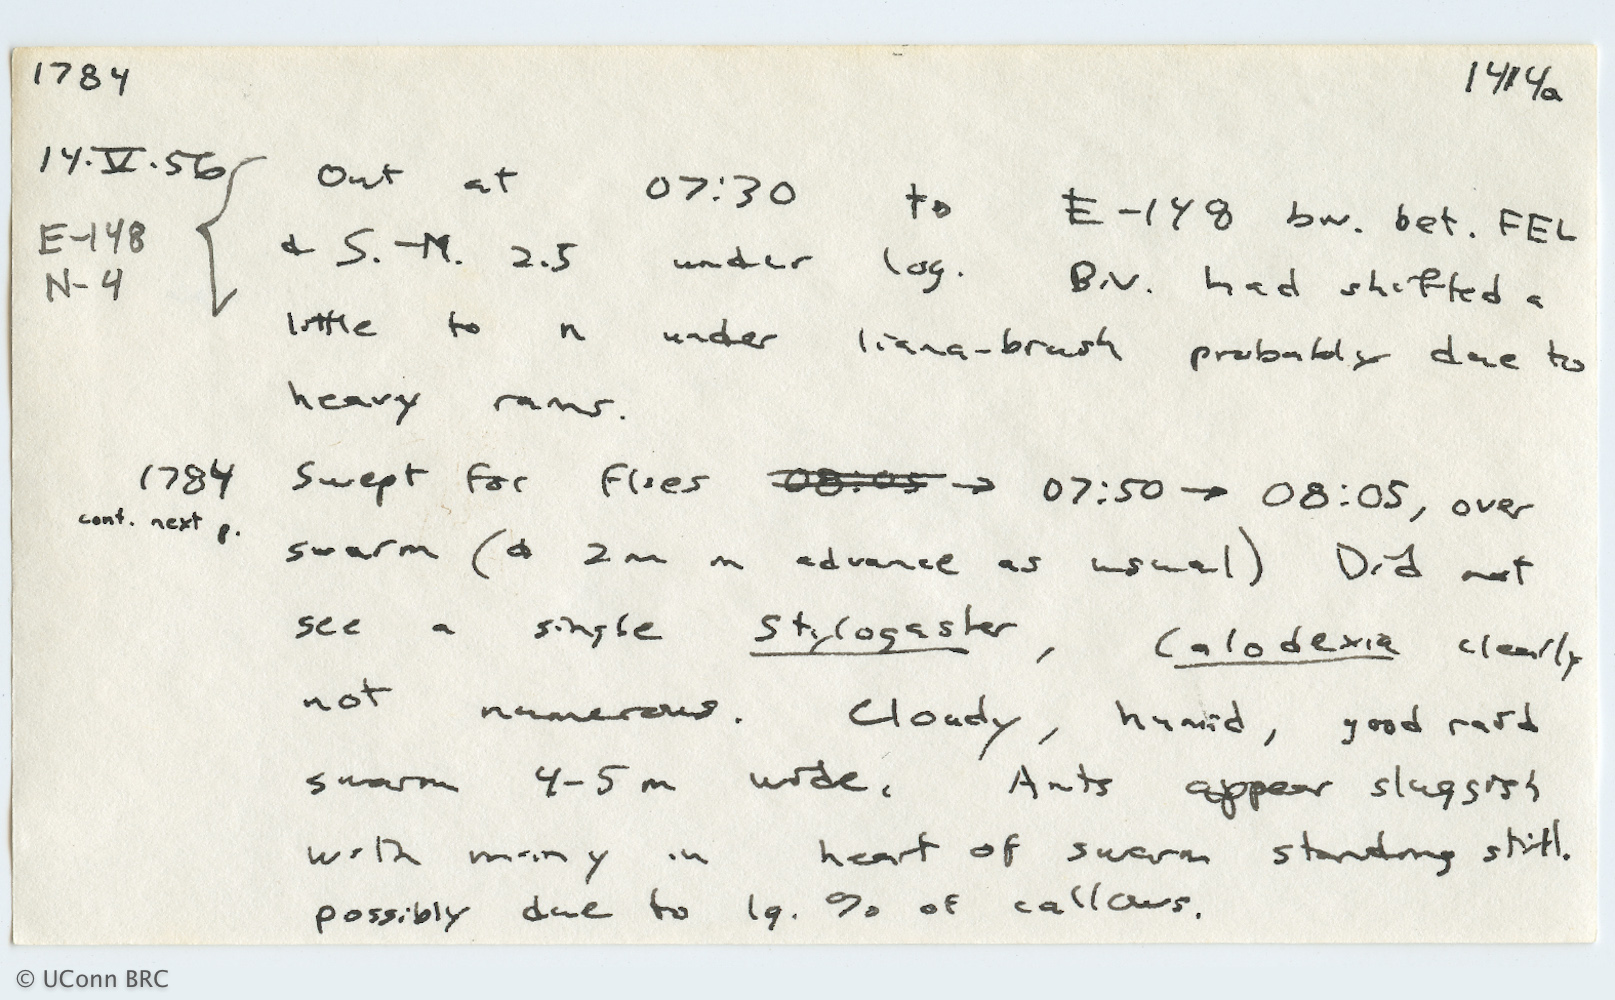 1784
1414a
14.V.56
E-148
N-4
Out at 07:30 to E-148 bv. bet. FEL
& S.-M. 2.5 under log. Biv. had shifted a
little to n under liana-brush probably due to
heavy rains.
1784
cont. next p.
Swept for flies 08:05 → 07:50 → 08:05, over
swarm (& 2 m in advance as usual) Did not
see a single Stylogaster, Calodexia clearly
not numerous. Cloudy, humid, good raid
swarm 4-5 m wide. Ants appear sluggish
with many in heart of swarm standing still.
possibly due to lg. % of callows.
© UConn BRC